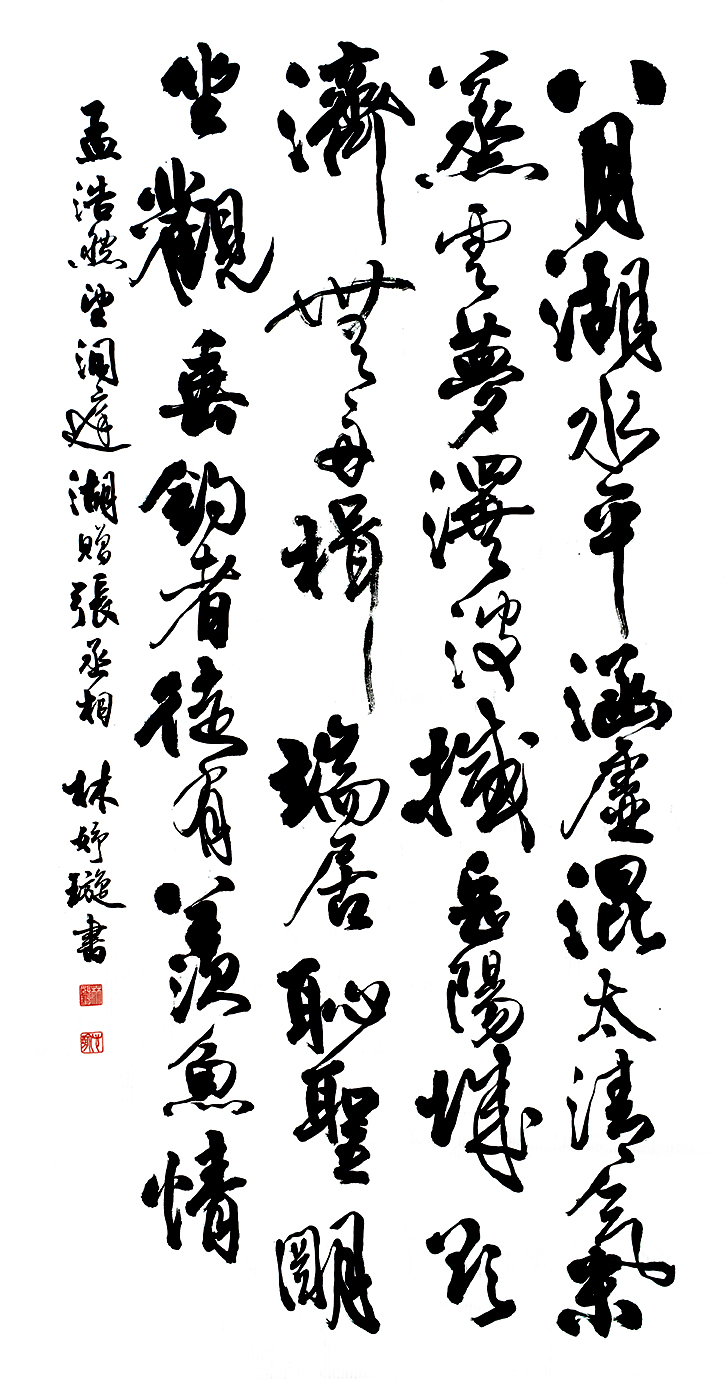 八月湖水平涵虛混太清氣
蒸雲夢澤波撼岳陽城欲
濟無舟楫端居恥聖明
坐觀垂釣者徒有羨魚情
孟浩然望洞庭湖贈張丞相 林妤璇書